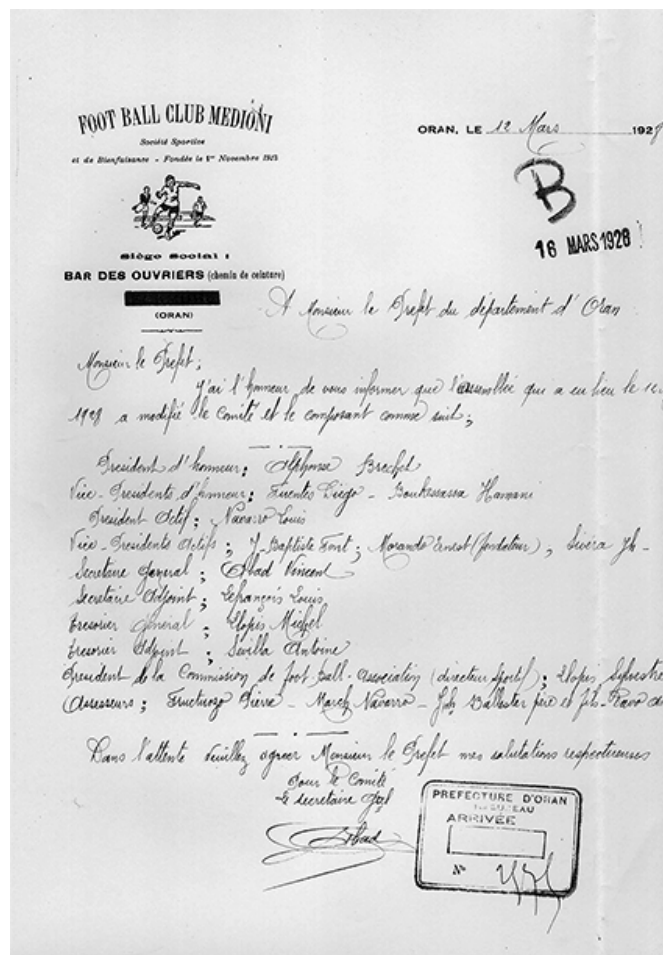 FOOT BALL CLUB MEDIONI
Société Sportive
et de Bienfaisance - Fondée le 1er Novembre
Siège Social :
BAR DES OUVRIERS (chemin de ceinture)
(ORAN)
ORAN, LE 12 Mars 1928
B
16 MARS 1928
A Monsieur le Prefet du département d'Oran
Monsieur le Prefet ;
J'ai l'honneur de vous informer que l'assemblée qui a eu lieu le
1928 a modifié le Comité et le composant comme suit ;
President d'honneur : Alphonse Brechet
Vice-Presidents d'honneur : Fuentes Diégo - Boukessassa Hamani
President Actif ; Navarro Louis
Vice-Presidents Actifs ; J-Baptiste Font ; Morando Ernest (fondateur) ; Sivéra Jh -
Secretaire General ; Abad Vincent
Secretaire Adjoint ; Lefrançois Louis
tresorier général ; Llopis Michel
tresorier Adjoint ; Sevilla Antoine
President de la Commission de foot-ball-association (directeur sportif) ; Llopis Sylvestre
Assesseurs ; Fructuozo Pierre - March Navarro - Jph Ballester père et fils - Ravo
Dans l'attente veuillez agreer Monsieur le Prefet mes salutations respectueuses
Pour le Comité
Le secretaire Gral
Abad
PREFECTURE D'ORAN
BUREAU
ARRIVÉE
N°